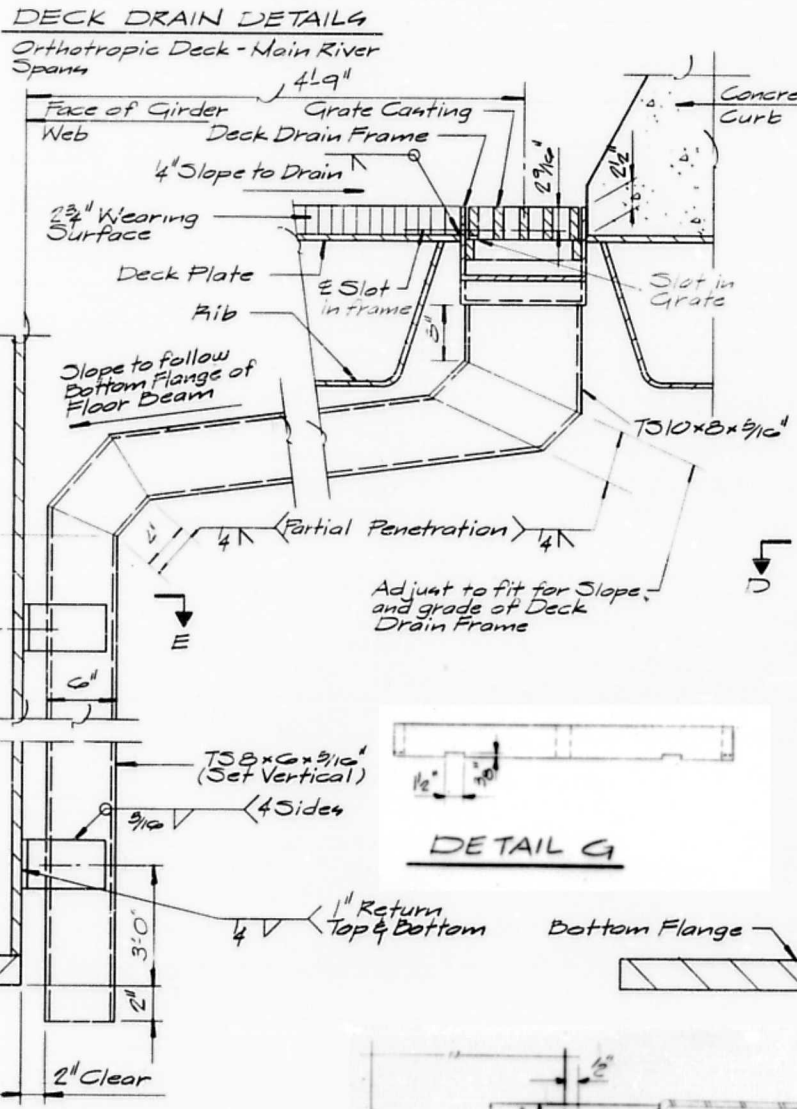 DECK DRAIN DETAILS
Orthotropic Deck - Main River
Spans
4'-9"
Face of Girder
Web
Grate Casting
Deck Drain Frame
Concre
Curb
1/4" Slope to Drain
2 9/16"
2 1/2"
2 3/4" Wearing
Surface
Deck Plate
℄ Slot
in frame
Slot in
Grate
Rib
8"
Slope to follow
Bottom Flange of
Floor Beam
TS10×8×5/16"
2"
1/4
Partial Penetration
1/4
Adjust to fit for Slope
and grade of Deck
Drain Frame
D
E
6"
TS8×6×5/16"
(Set Vertical)
5/16
4 Sides
1 1/2"
DETAIL G
1" Return
Top & Bottom
1/4
3'-0"
2"
Bottom Flange
2" Clear
1/2"